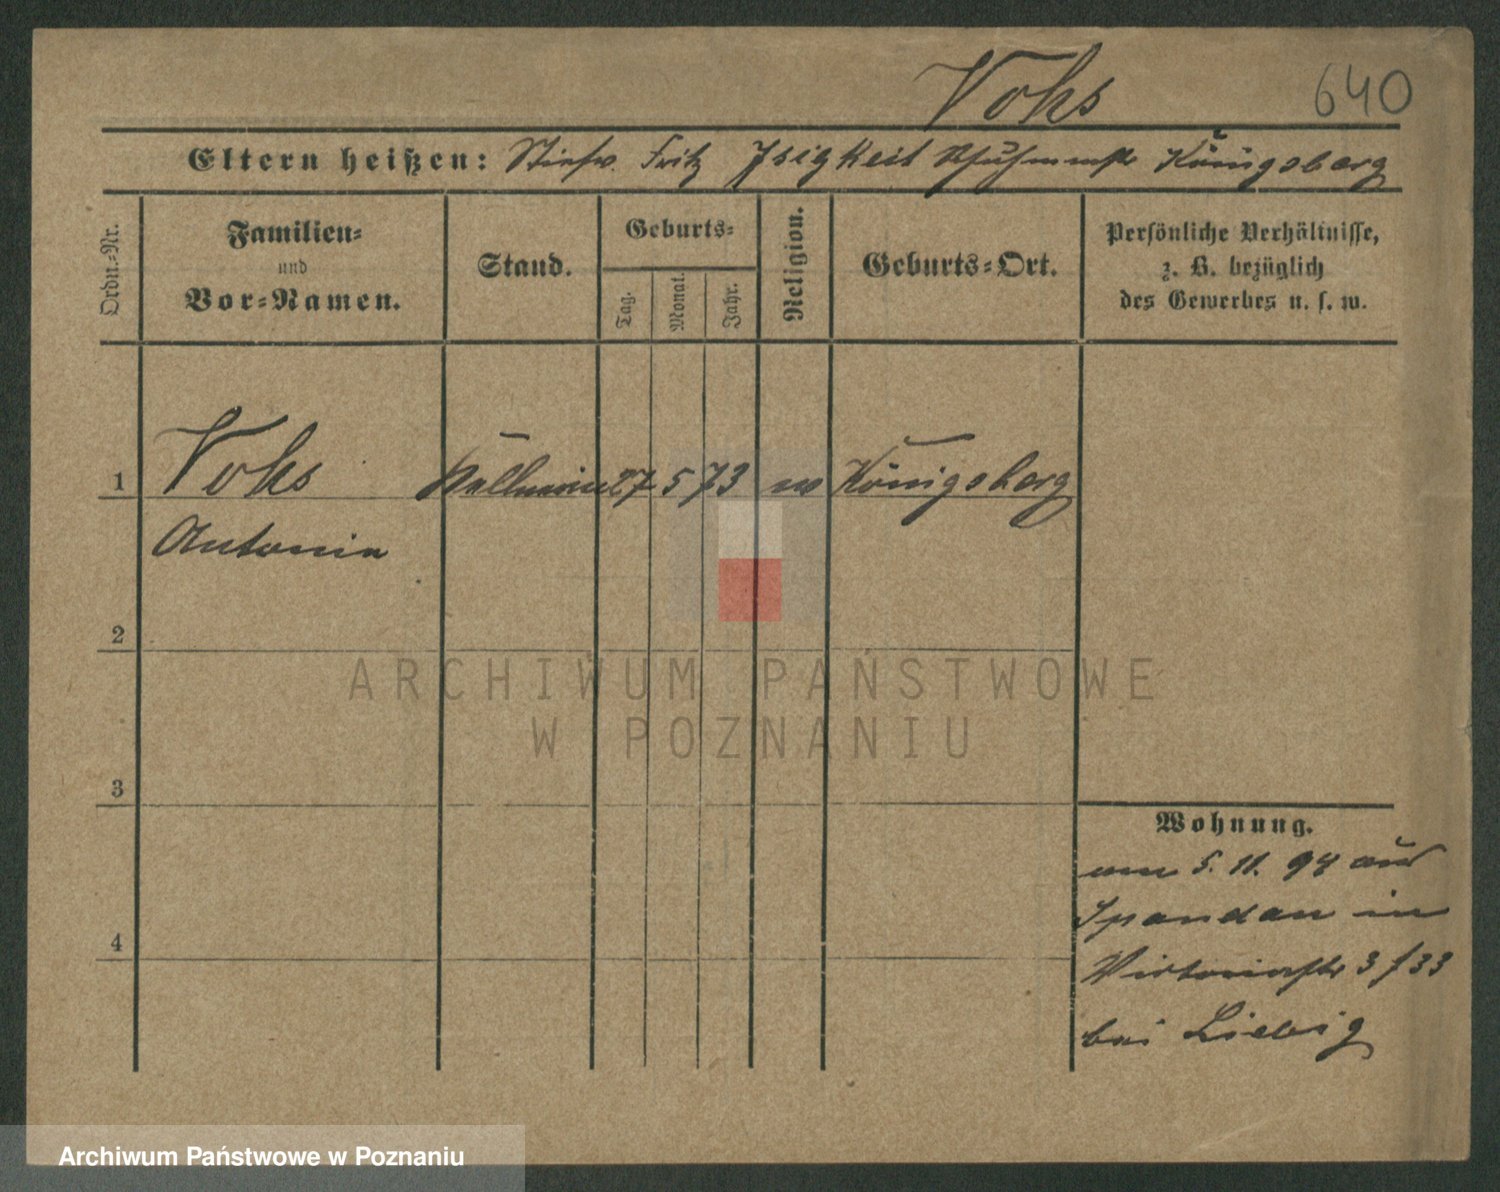 Vohs 640
Eltern heißen: Stiefv. Fritz Isigkeit Schuhmstr Königsberg
Ordn.-Nr.
Familien-
und
Vor-Namen.
Stand.
Geburts-
Tag.
Monat.
Jahr.
Religion.
Geburts-Ort.
Persönliche Verhältnisse,
z. B. bezüglich
des Gewerbes u. s. w.
1 Vohs Kellnerin 27 5 73 ev Königsberg
Antonie
2
3
4
Wohnung.
am 5. 11. 94 aus
Spandau in
Victoriastr 3 / 33
bei Liebig
ARCHIWUM PAŃSTWOWE
W POZNANIU
Archiwum Państwowe w Poznaniu